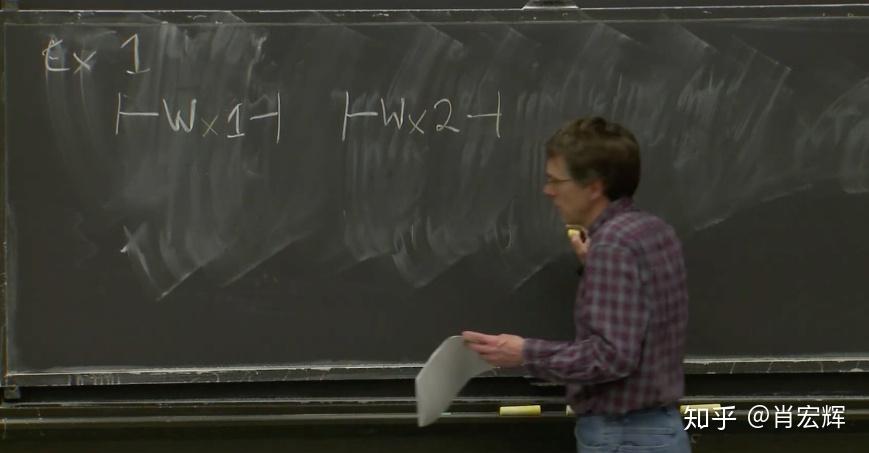 Ex 1
|-Wx1-| |-Wx2-|
知乎 @肖宏辉